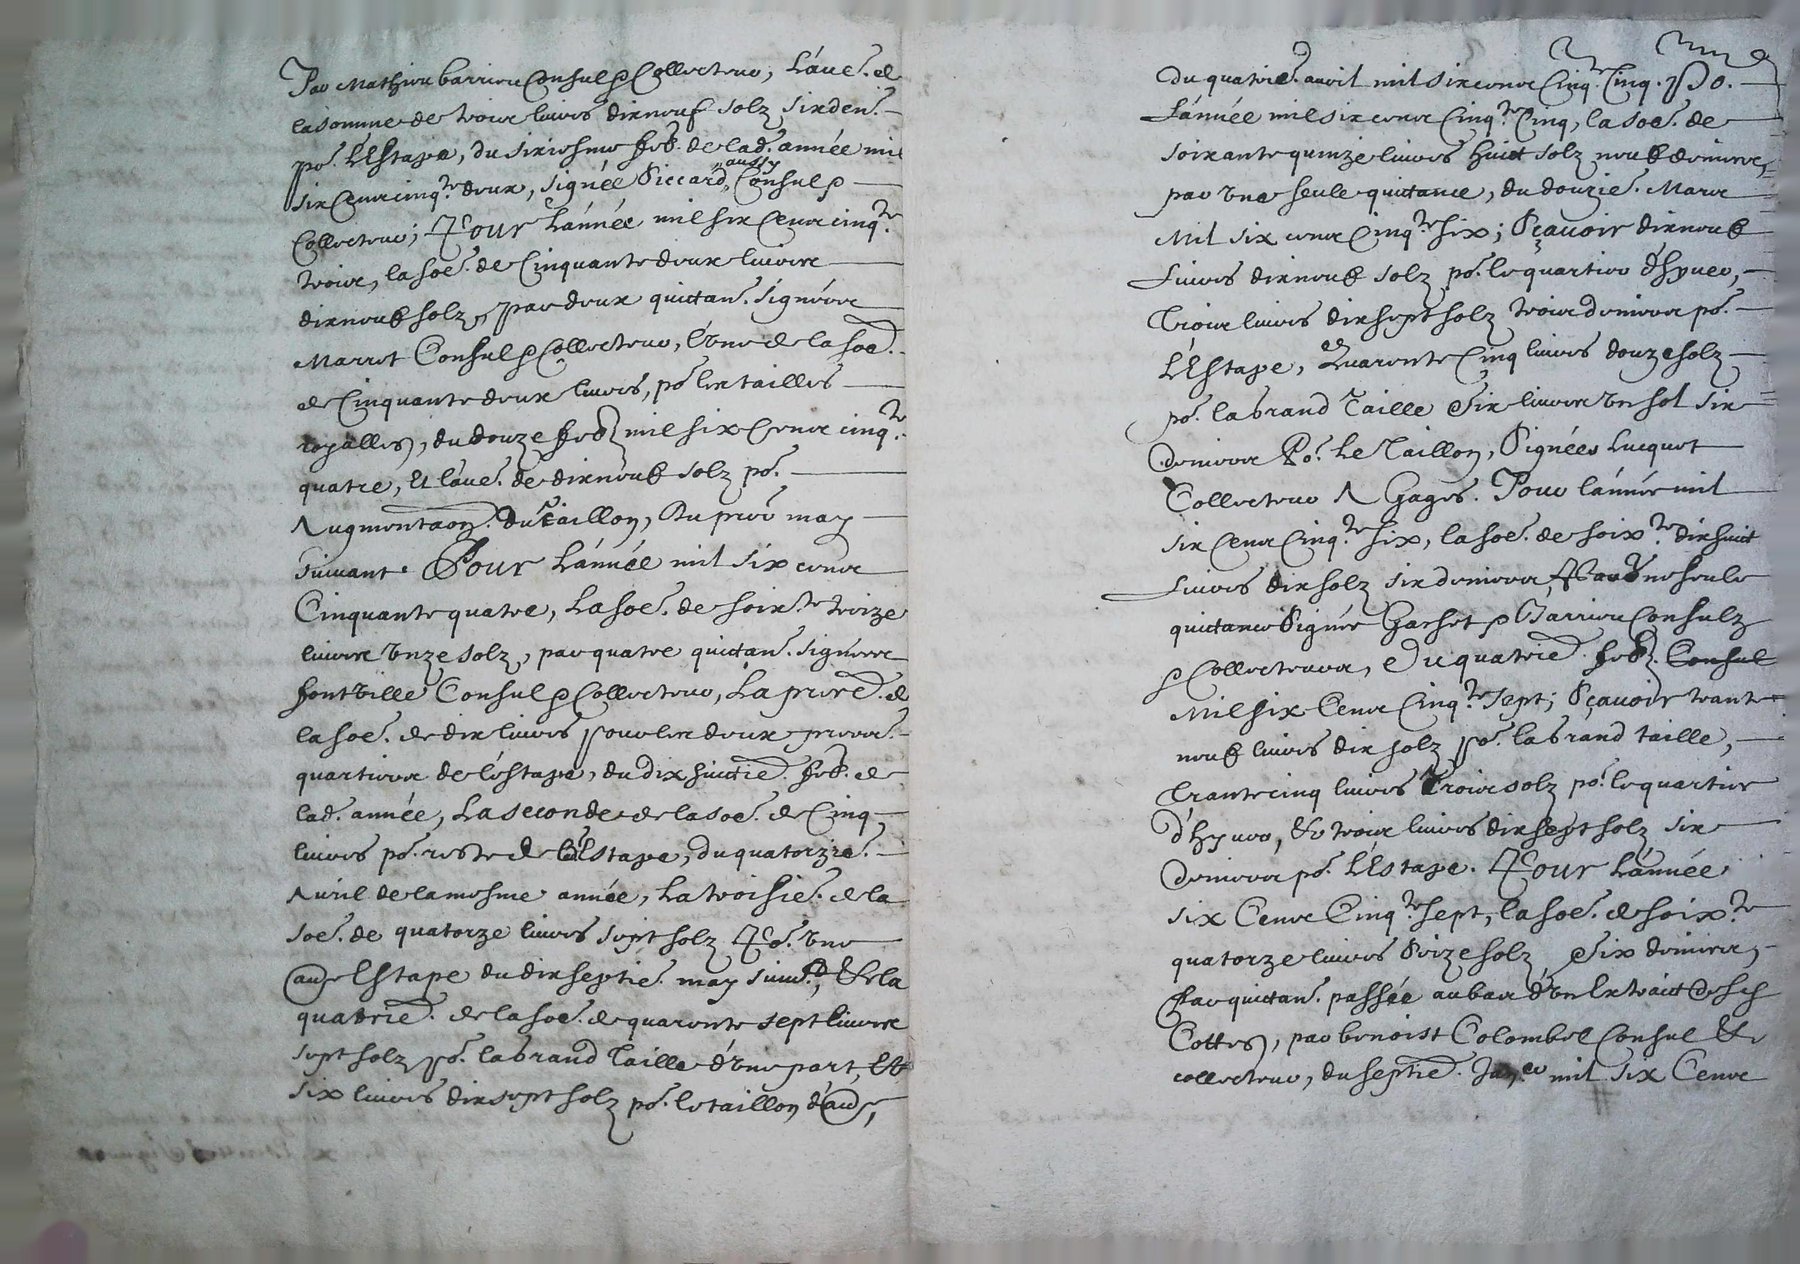 Par Mathieu barrieu Consul & Collecteur, L'au.e de
la somme de trois livres dix neuf solz six den.
po.r L'Estape, du sixiesme feb. de lad. année mil
six Cens cinq.te deux, signée Piccard, aussy Consul &
Collecteur; Pour L'année mil six Cens cinq.te
trois, la soe. de Cinquante deux livres
dix neuf solz, par deux quittan. signées
Marret Consul & Collecteur, l'une de la soe.
de Cinquante deux livres, po.r les tailles
royalles, du douze feb. mil six Cens cinq.te
quatre, Et l'au.e de dix neuf solz po.r
Augmentaon. du taillon, Du prer may
suivant. Pour L'année mil six cens
Cinquante quatre, La soe. de soix.te treize
livres unze solz, par quatre quittan. signées
fontville Consul & Collecteur, La prere. de
la soe. de dix livres pour les deux prers.
quartiers de l'estape, du dix huictie. feb. de
lad. année, La seconde de la soe. de Cinq
livres po.r reste de l'Estape, du quatorzie.
Avril de la mesme année, La troisie. de la
soe. de quatorze livres sept solz Po.r une
au.e Estape du dix septie. may suiv.t, Et la
quatrie. de la soe. de quarente sept livres
sept solz po.r la grand Taille d'une part, Et
six livres dix sept solz po.r le taillon d'au.e,
du quatrie. avril mil six cens Cinq.te Cinq. Po.r
L'année mil six cens Cinq.te Cinq, la soe. de
soixante quinze livres huict solz neuf deniers,
par une seule quittance, du douzie. Mars
Mil six cens Cinq.te six; Sçavoir dix neuf
Livres dix neuf solz po.r le quartier d'hyver,
Trois livres dix sept solz trois deniers po.r
L'Estape, et Quarente Cinq livres douze solz
po.r la grand Taille & six livres un sol six
deniers Po.r Le Taillon, Signées Lucquet
Collecteur A Gages. Pour L'année mil
six Cens Cinq.te six, la soe. de soix.te dix huict
Livres dix solz six deniers Par une seule
quittance Signée Gachet & Barrieu Consulz
& Collecteurs, Du quatrie. feb. Consul
Mil six Cens Cinq.te sept; Sçavoir trante
neuf livres dix solz po.r la grand taille,
Trante cinq livres Trois solz po.r le quartier
d'hyver, Et trois livres dix sept solz six
deniers po.r L'Estape. Pour L'année
six Cens Cinq.te sept, la soe. de soix.te
quatorze livres Seize solz & Six deniers,
Par quittan. passée au bas d'un Extraict des
Cottes, par benoist Colombel Consul Et
collecteur, du septie. Jan.er mil six Cens